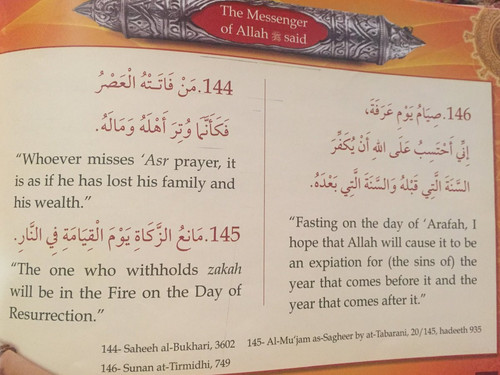 The Messenger
of Allah ﷺ said
144. مَنْ فَاتَتْهُ الْعَصْرُ
فَكَأَنَّمَا وُتِرَ أَهْلَهُ وَمَالَهُ.
“Whoever misses ‘Asr prayer, it
is as if he has lost his family and
his wealth.”
145. مَانِعُ الزَّكَاةِ يَوْمَ الْقِيَامَةِ فِي النَّارِ.
“The one who withholds zakah
will be in the Fire on the Day of
Resurrection.”
146. صِيَامُ يَوْمِ عَرَفَةَ،
إِنِّي أَحْتَسِبُ عَلَى اللهِ أَنْ يُكَفِّرَ
السَّنَةَ الَّتِي قَبْلَهُ وَالسَّنَةَ الَّتِي بَعْدَهُ.
“Fasting on the day of ‘Arafah, I
hope that Allah will cause it to be
an expiation for (the sins of) the
year that comes before it and the
year that comes after it.”
144- Saheeh al-Bukhari, 3602 145- Al-Mu‘jam as-Sagheer by at-Tabarani, 20/145, hadeeth 935
146- Sunan at-Tirmidhi, 749